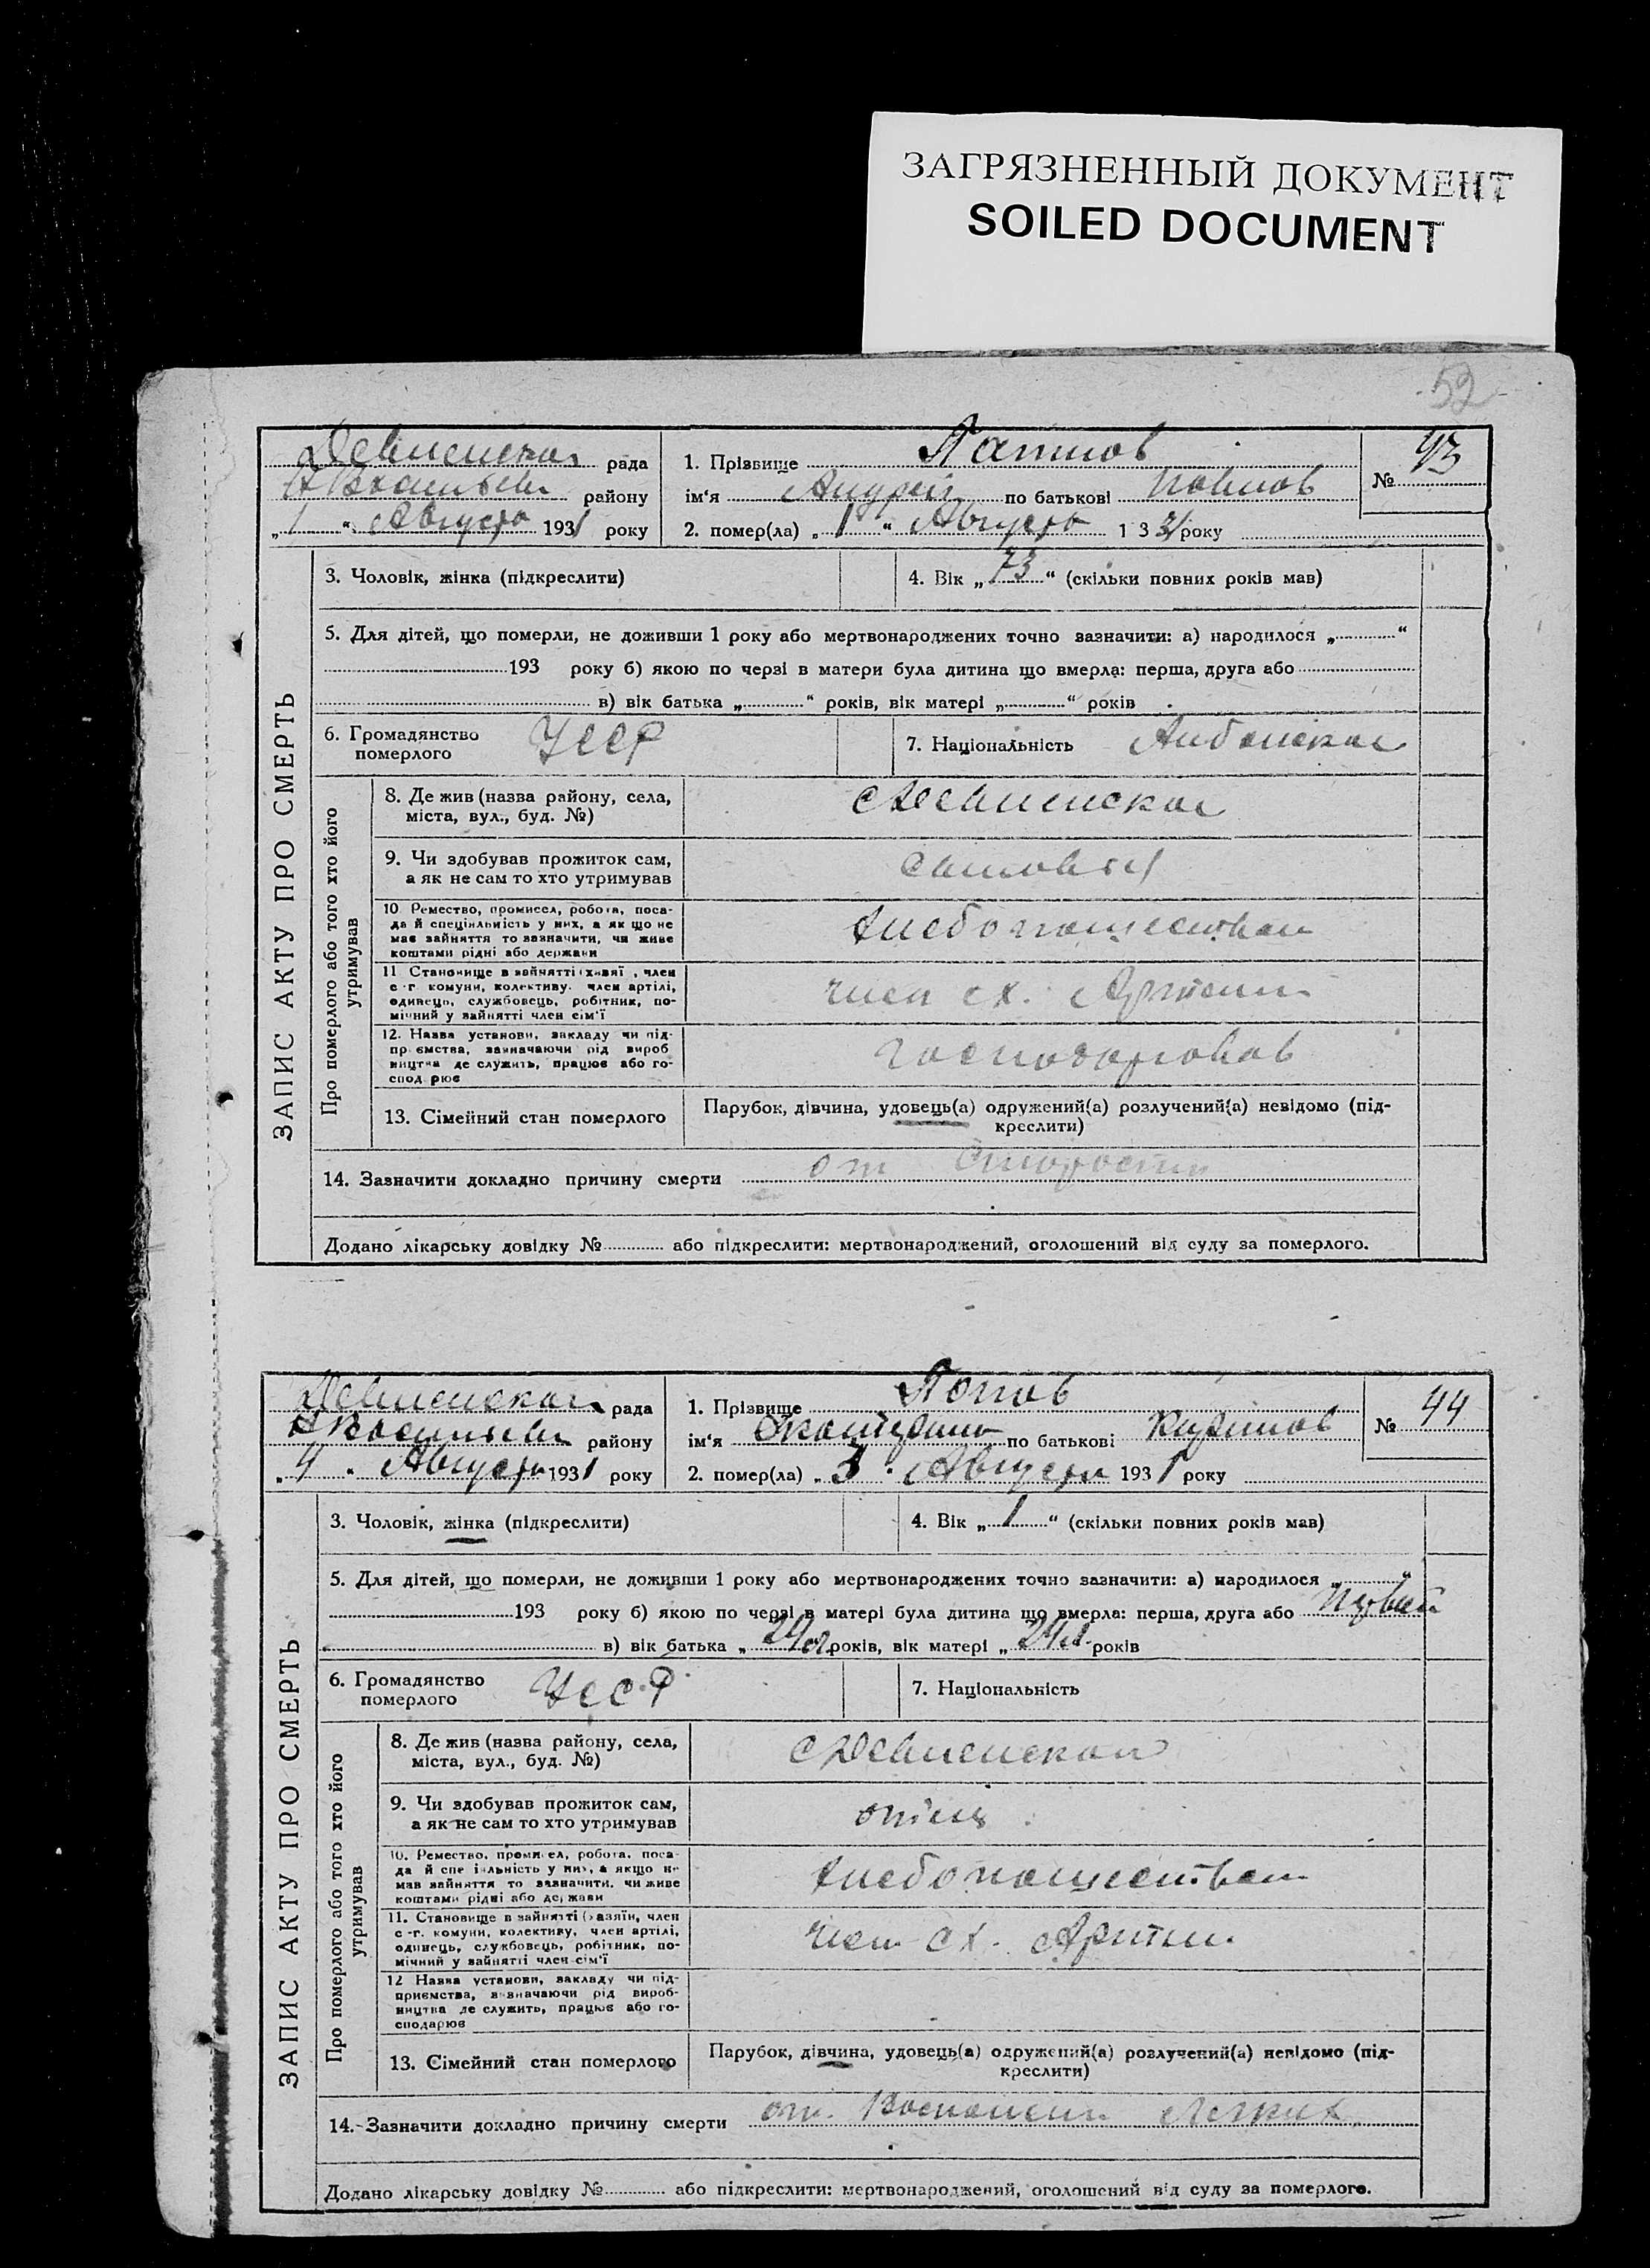 ЗАГРЯЗНЕННЫЙ ДОКУМЕНТ
SOILED DOCUMENT
52
рада
району
„ 1 “ Августа 1931 року
1. Прізвище
ім‘я Андрей по батькові Павлов
2. помер(ла) „ 1 “ Августа 1 3 31 року
№ 43
ЗАПИС АКТУ ПРО СМЕРТЬ
3. Чоловік, жінка (підкреслити)
4. Вік „ 73 “ (скільки повних років мав)
5. Для дітей, що померли, не доживши 1 року або мертвонароджених точно зазначити: а) народилося „ “
193 року б) якою по черзі в матери була дитина що вмерла: перша, друга або
в) вік батька „ “ років, вік матері „ “ років
6. Громадянство
померлого
УССР
7. Національність
Про померлого або того хто його
утримував
8. Де жив (назва району, села,
міста, вул., буд. №)
9. Чи здобував прожиток сам,
а як не сам то хто утримував
10. Ремество, промисел, робота, поса-
да й спеціяльність у них, а як що не
має зайняття то зазначити, чи живе
коштами рідні або держави
11 Становище в зайнятті (хазяї , член
с -г комуни, колективу. член артілі,
одинець, службовець, робітник, по-
мічний у зайнятті член сім‘ї
член сх. Артели
12. Назва установи, закладу чи під-
пр ємства, зазначаючи рід вироб
ництва де служить, працює або го-
спод рює
13. Сімейний стан померлого
Парубок, дівчина, удовець(а) одружений(а) розлучений(а) невідомо (під-
креслити)
14. Зазначити докладно причину смерти от Старости
Додано лікарську довідку № або підкреслити: мертвонароджений, оголошений від суду за померлого.
рада
району
„ 4 “ Августа 1931 року
1. Прізвище Попов
ім‘я по батькові
2. помер(ла) „ 3 “ Августа 1931 року
№ 44
ЗАПИС АКТУ ПРО СМЕРТЬ
3. Чоловік, жінка (підкреслити)
4. Вік „ 1 “ (скільки повних років мав)
5. Для дітей, що померли, не доживши 1 року або мертвонароджених точно зазначити: а) народилося „ “
193 року б) якою по черзі в матері була дитина що вмерла: перша, друга або
в) вік батька „ 24 років, вік матері „ 24 років
6. Громадянство
померлого
УСС.Р.
7. Національність
Про померлого або того хто його
утримував
8. Де жив (назва району, села,
міста, вул., буд. №)
9. Чи здобував прожиток сам,
а як не сам то хто утримував
отец
10. Ремество, промисел, робота, поса-
да й спе іяльність у них, а якщо не
має зайняття то зазначити, чи живе
коштами рідні або держави
11. Становище в зайнятті (хазяїн, член
с -г. комуни, колективу, член артілі,
одинець, службовець, робітник, по-
мічний у зайнятті член сім‘ї
член сх. Артели
12 Назва установи, закладу чи під-
приємства, зазначаючи рід вироб-
ництва де служить, працює або го-
сподарює
13. Сімейний стан померлого
Парубок, дівчина, удовець(а) одружений(а) розлучений(а) невідомо (під-
креслити)
14. Зазначити докладно причину смерти от Легких
Додано лікарську довідку № або підкреслити: мертвонароджений, оголошений від суду за померлого.